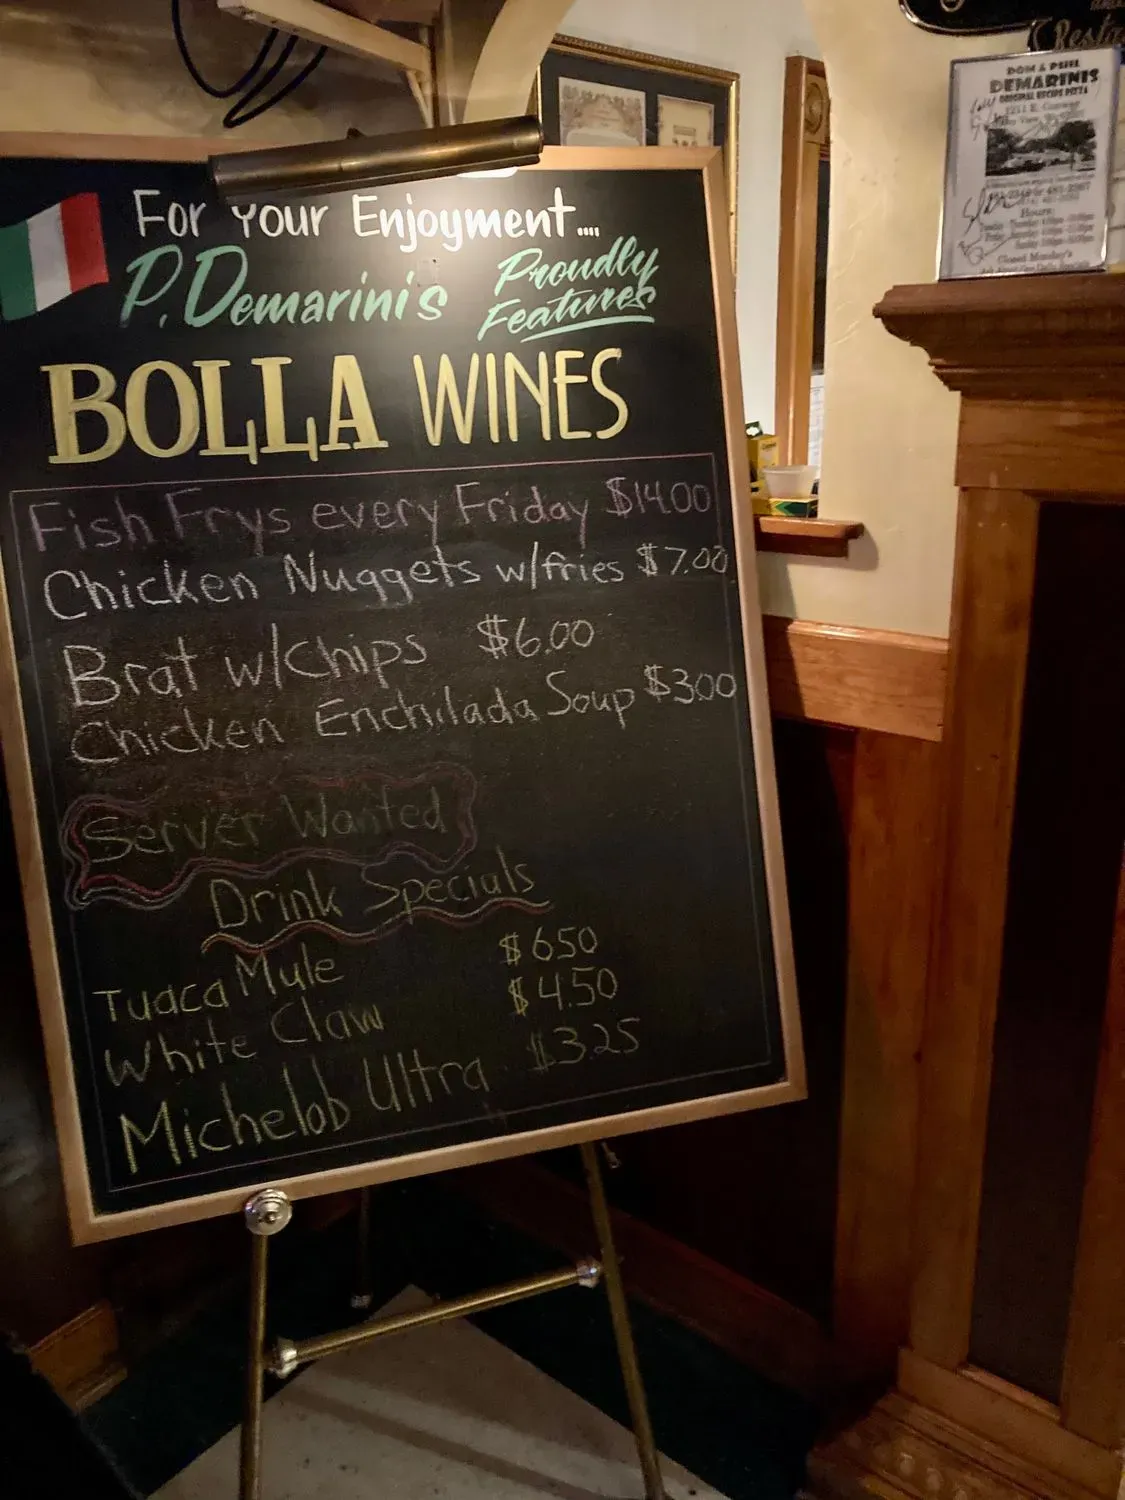 For Your Enjoyment....
P. Demarini's Proudly Features
BOLLA WINES
Fish Frys every Friday $14.00
Chicken Nuggets w/fries $7.00
Brat w/Chips $6.00
Chicken Enchilada Soup $3.00
Server Wanted
Drink Specials
Tuaca Mule $6.50
White Claw $4.50
Michelob Ultra $3.25
DOM & PHIL
DEMARINIS
ORIGINAL RECIPE PIZZA
1211 E. Conway
Hours:
Closed Monday's